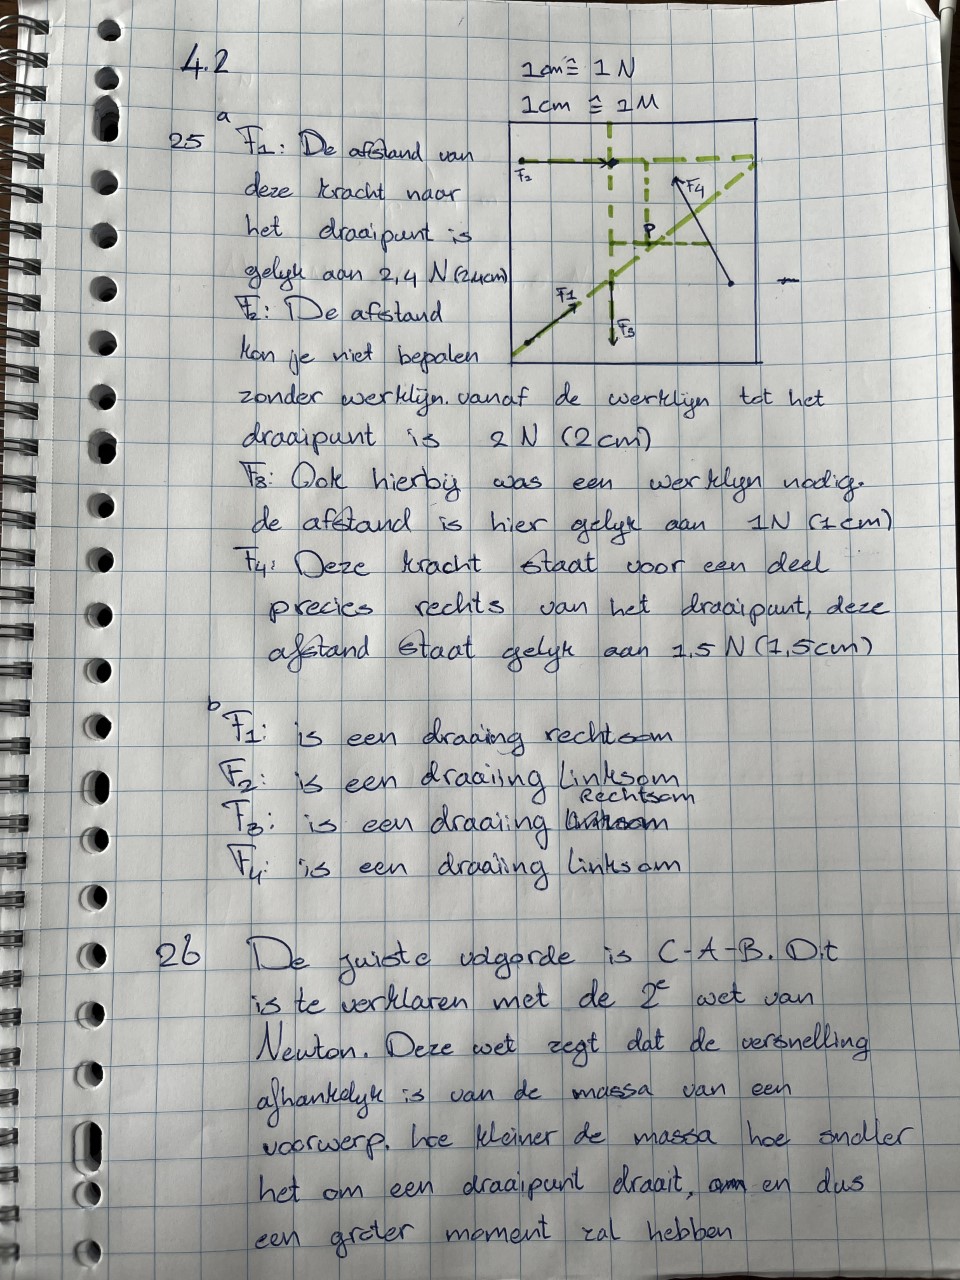 4.2
1cm ≙ 1 N
1cm ≙ 1M
25 a F1: De afstand van
deze kracht naar
het draaipunt is
gelyk aan 2,4 N (2,4cm)
F2: De afstand
kan je niet bepalen
zonder werklijn. vanaf de werklijn tot het
draaipunt is 2 N (2cm)
F3: Ook hierbij was een werklyn nodig.
de afstand is hier gelyk aan 1N (1cm)
F4: Deze kracht staat voor een deel
precies rechts van het draaipunt, deze
afstand staat gelyk aan 1,5 N (1,5cm)
F2
F4
P
F1
F3
b F1: is een draaing rechtsom
F2: is een draaiing Linksom
Rechtsom
F3: is een draaiing
F4: is een draaiing linksom
26 De juiste volgorde is C-A-B. Dit
is te verklaren met de 2e wet van
Newton. Deze wet zegt dat de versnelling
afhankelyk is van de massa van een
voorwerp. hoe kleiner de massa hoe sneller
het om een draaipunt draait, en dus
een groter moment zal hebben